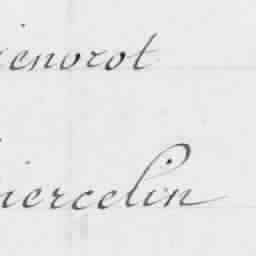 ienorot
iercelin